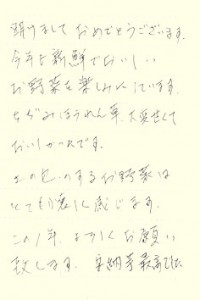 明けまして おめでとうございます。
今年も新鮮でおいしい
お野菜を楽しみにしています。
ちぢみほうれん草、大変甘くて
おいしかったです。
お野菜は
とても身近に感じます。
この1年、よろしくお願い
致します。 最高でした